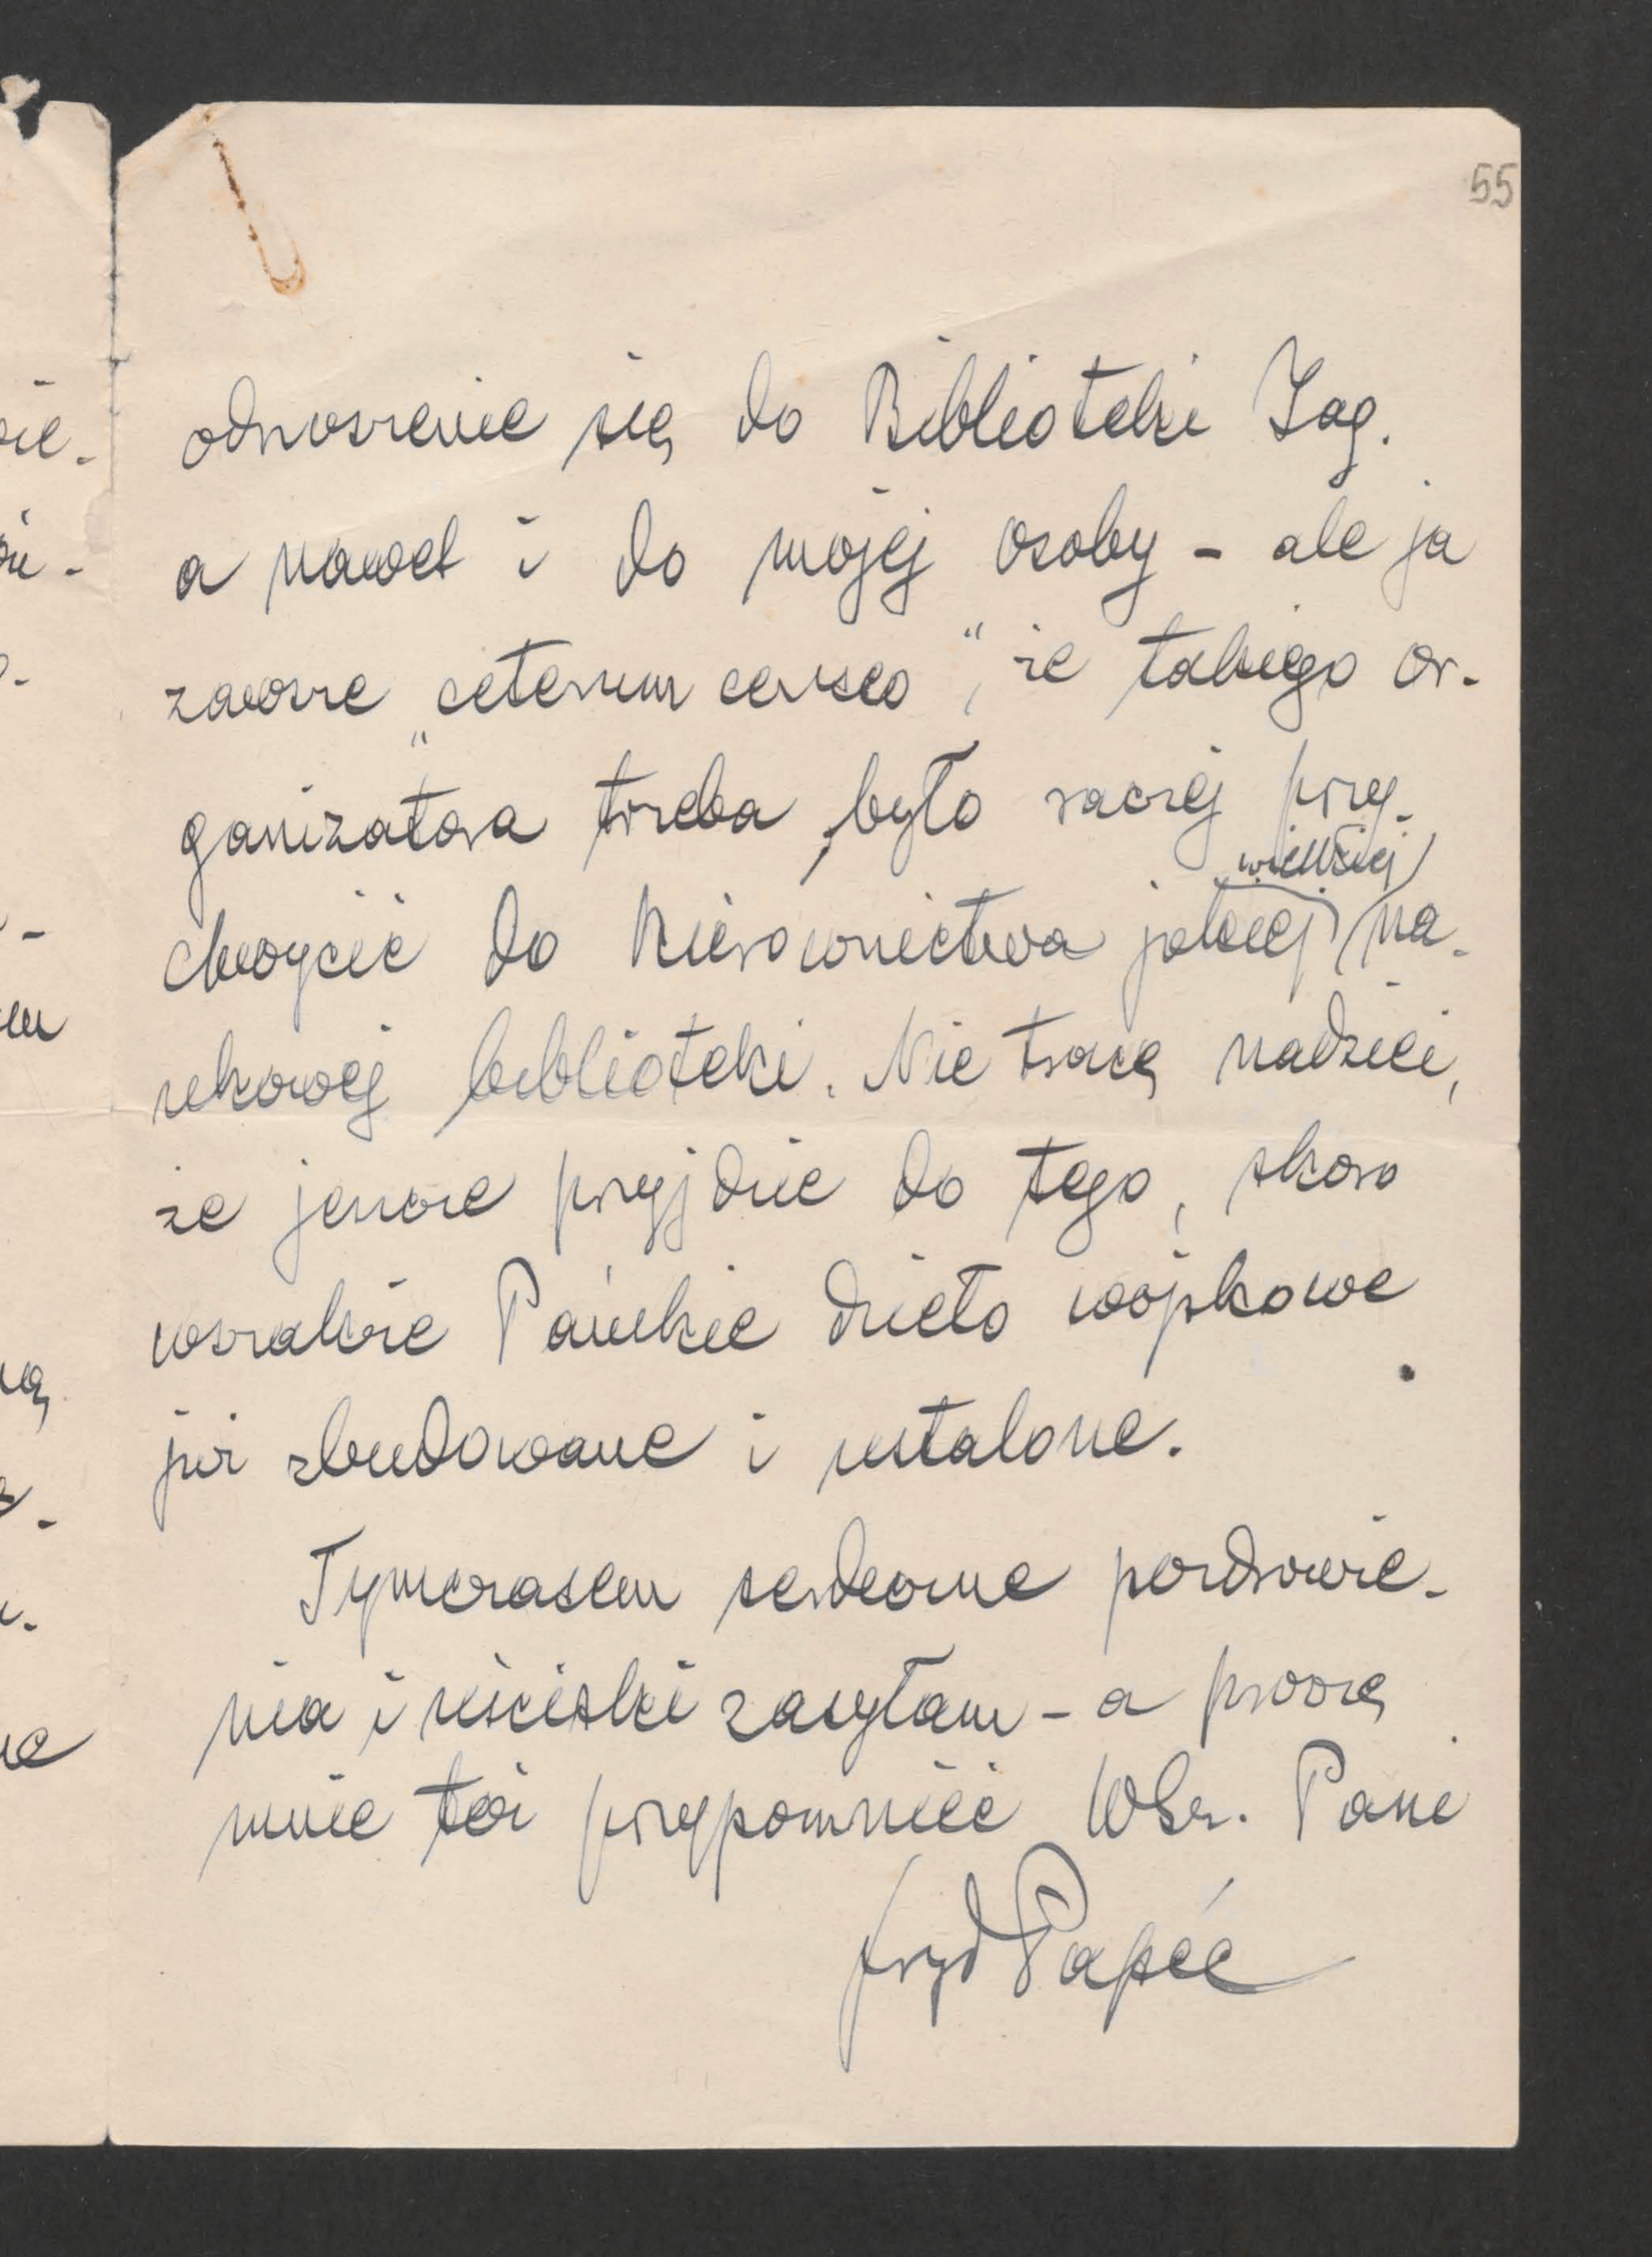 55
odnoszenie się do Biblioteki Jag.
a nawet i do mojej osoby – ale ja
zawsze „ceterum censeo”, że takiego or-
ganizatora trzeba było raczej przy-
większej
chwycić do kierownictwa jakiej na-
ukowej biblioteki. Nie tracę nadziei,
że jeszcze przyjdzie do tego, skoro
wszakże Pańskie dzieło wojskowe
już zbudowane i ustalone.
Tymczasem serdeczne pozdrowie-
nia i uściski zasyłam – a proszę
mnie też przypomnieć WSz. Pani
Fryd Papée